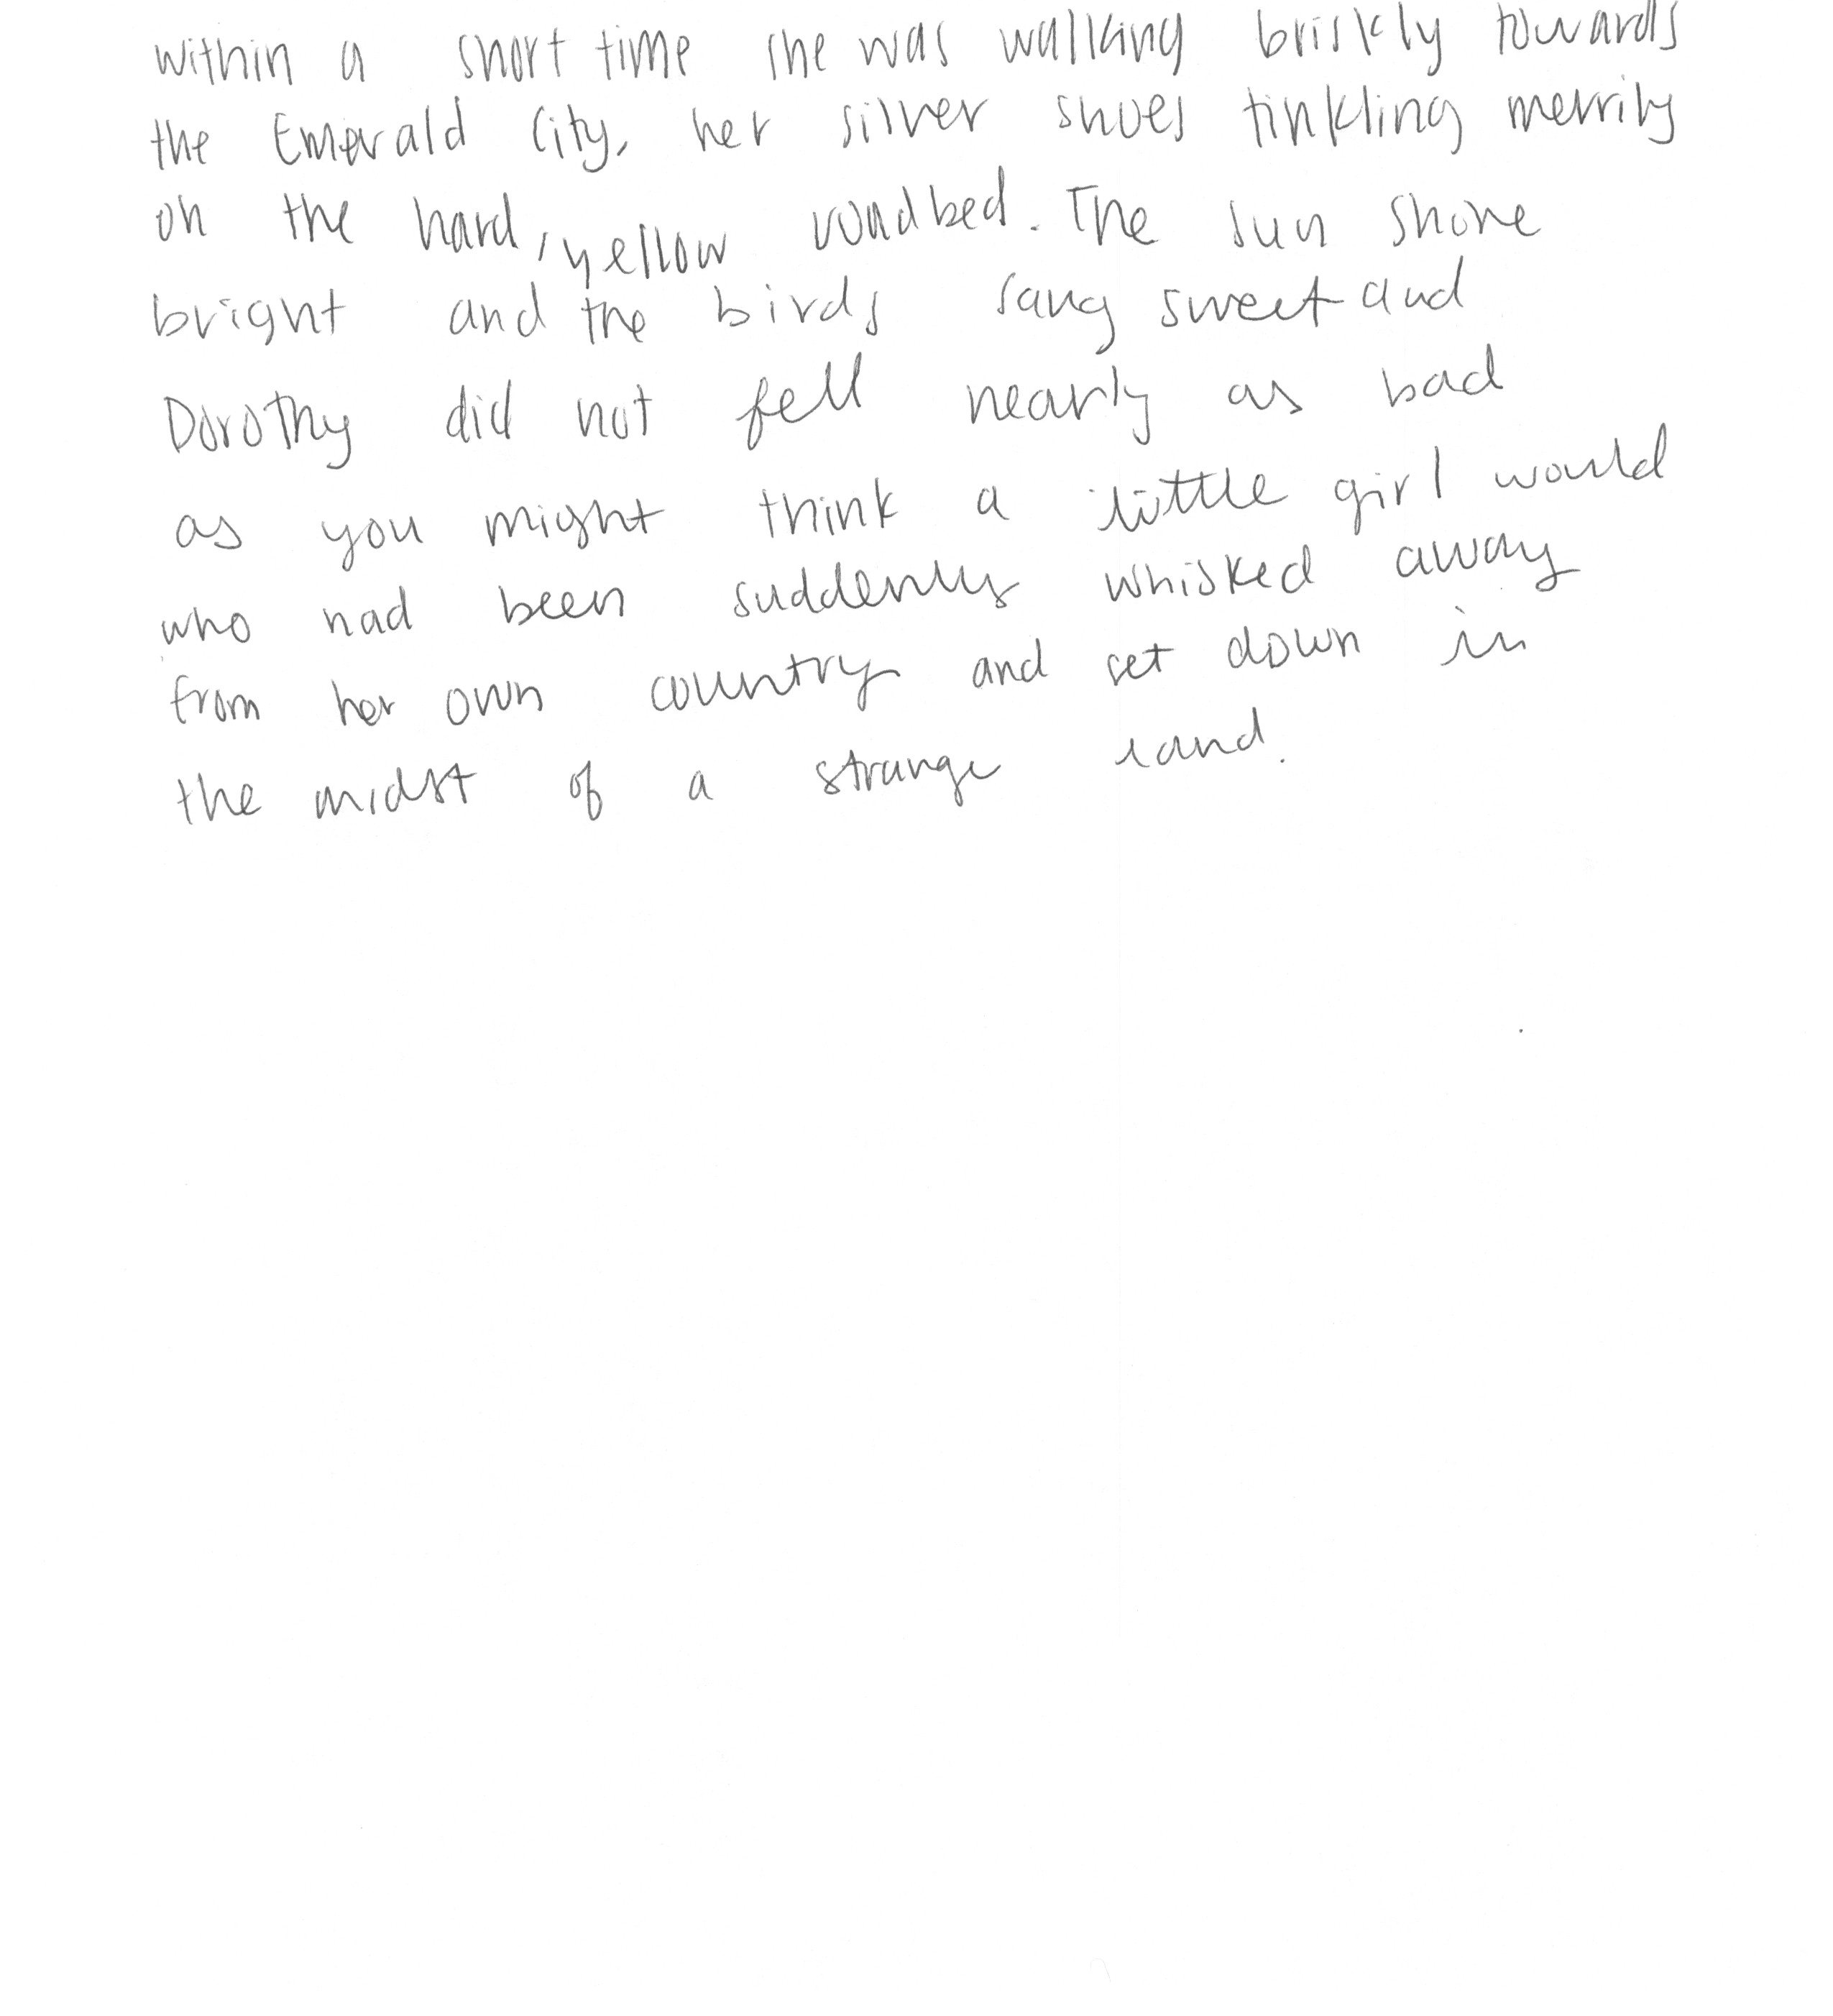 within a short time she was walking briskly towards
the Emerald City, her silver shoes tinkling merrily
on the hard, yellow roadbed. The sun shone
bright and the birds sang sweet and
Dorothy did not fell nearly as bad
as you might think a little girl would
who had been suddenly whisked away
from her own country and set down in
the midst of a strange land.